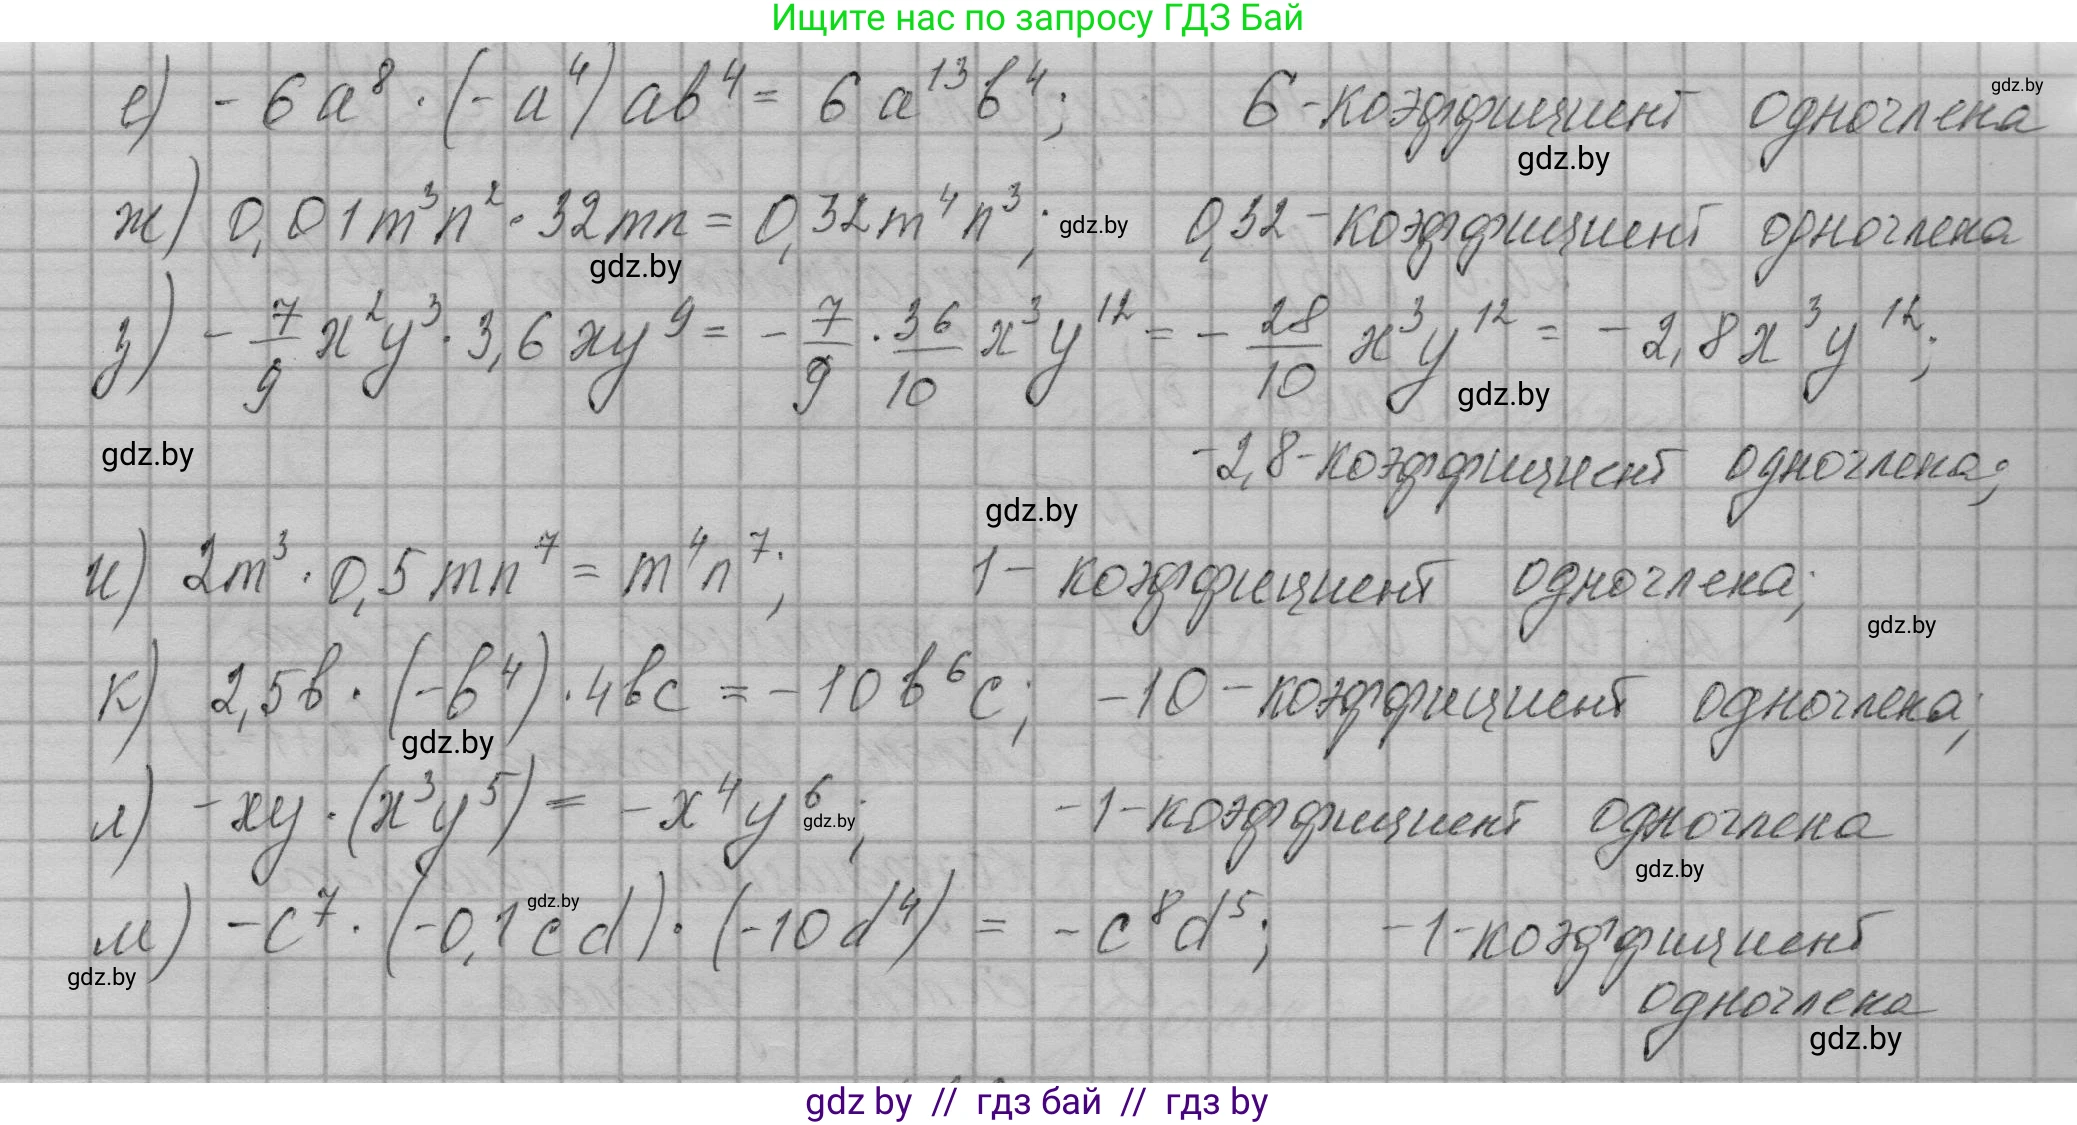 Ищите нас по запросу ГДЗ Бай
е) -6a⁸·(-a⁴)ab⁴ = 6a¹³b⁴; 6-коэффициент одночлена
gdz.by
gdz.by
ж) 0,01m³n²·32mn = 0,32m⁴n³; gdz.by 0,32-коэффициент одночлена
gdz.by
з) -7/9 x²y³·3,6xy⁹ = -7/9·36/10 x³y¹² = -28/10 x³y¹² = -2,8x³y¹²;
gdz.by
gdz.by -2,8-коэффициент одночлена;
gdz.by
и) 2m³·0,5mn⁷ = m⁴n⁷; 1-коэффициент одночлена;
gdz.by
к) 2,5b·(-b⁴)·4bc = -10b⁶c; -10-коэффициент одночлена;
gdz.by
л) -xy·(x³y⁵) = -x⁴y⁶; -1-коэффициент одночлена
gdz.by
gdz.by
gdz.by
м) -c⁷·(-0,1cd)·(-10d⁴) = -c⁸d⁵; -1-коэффициент
gdz.by
одночлена
gdz.by
gdz by // гдз бай // гдз by